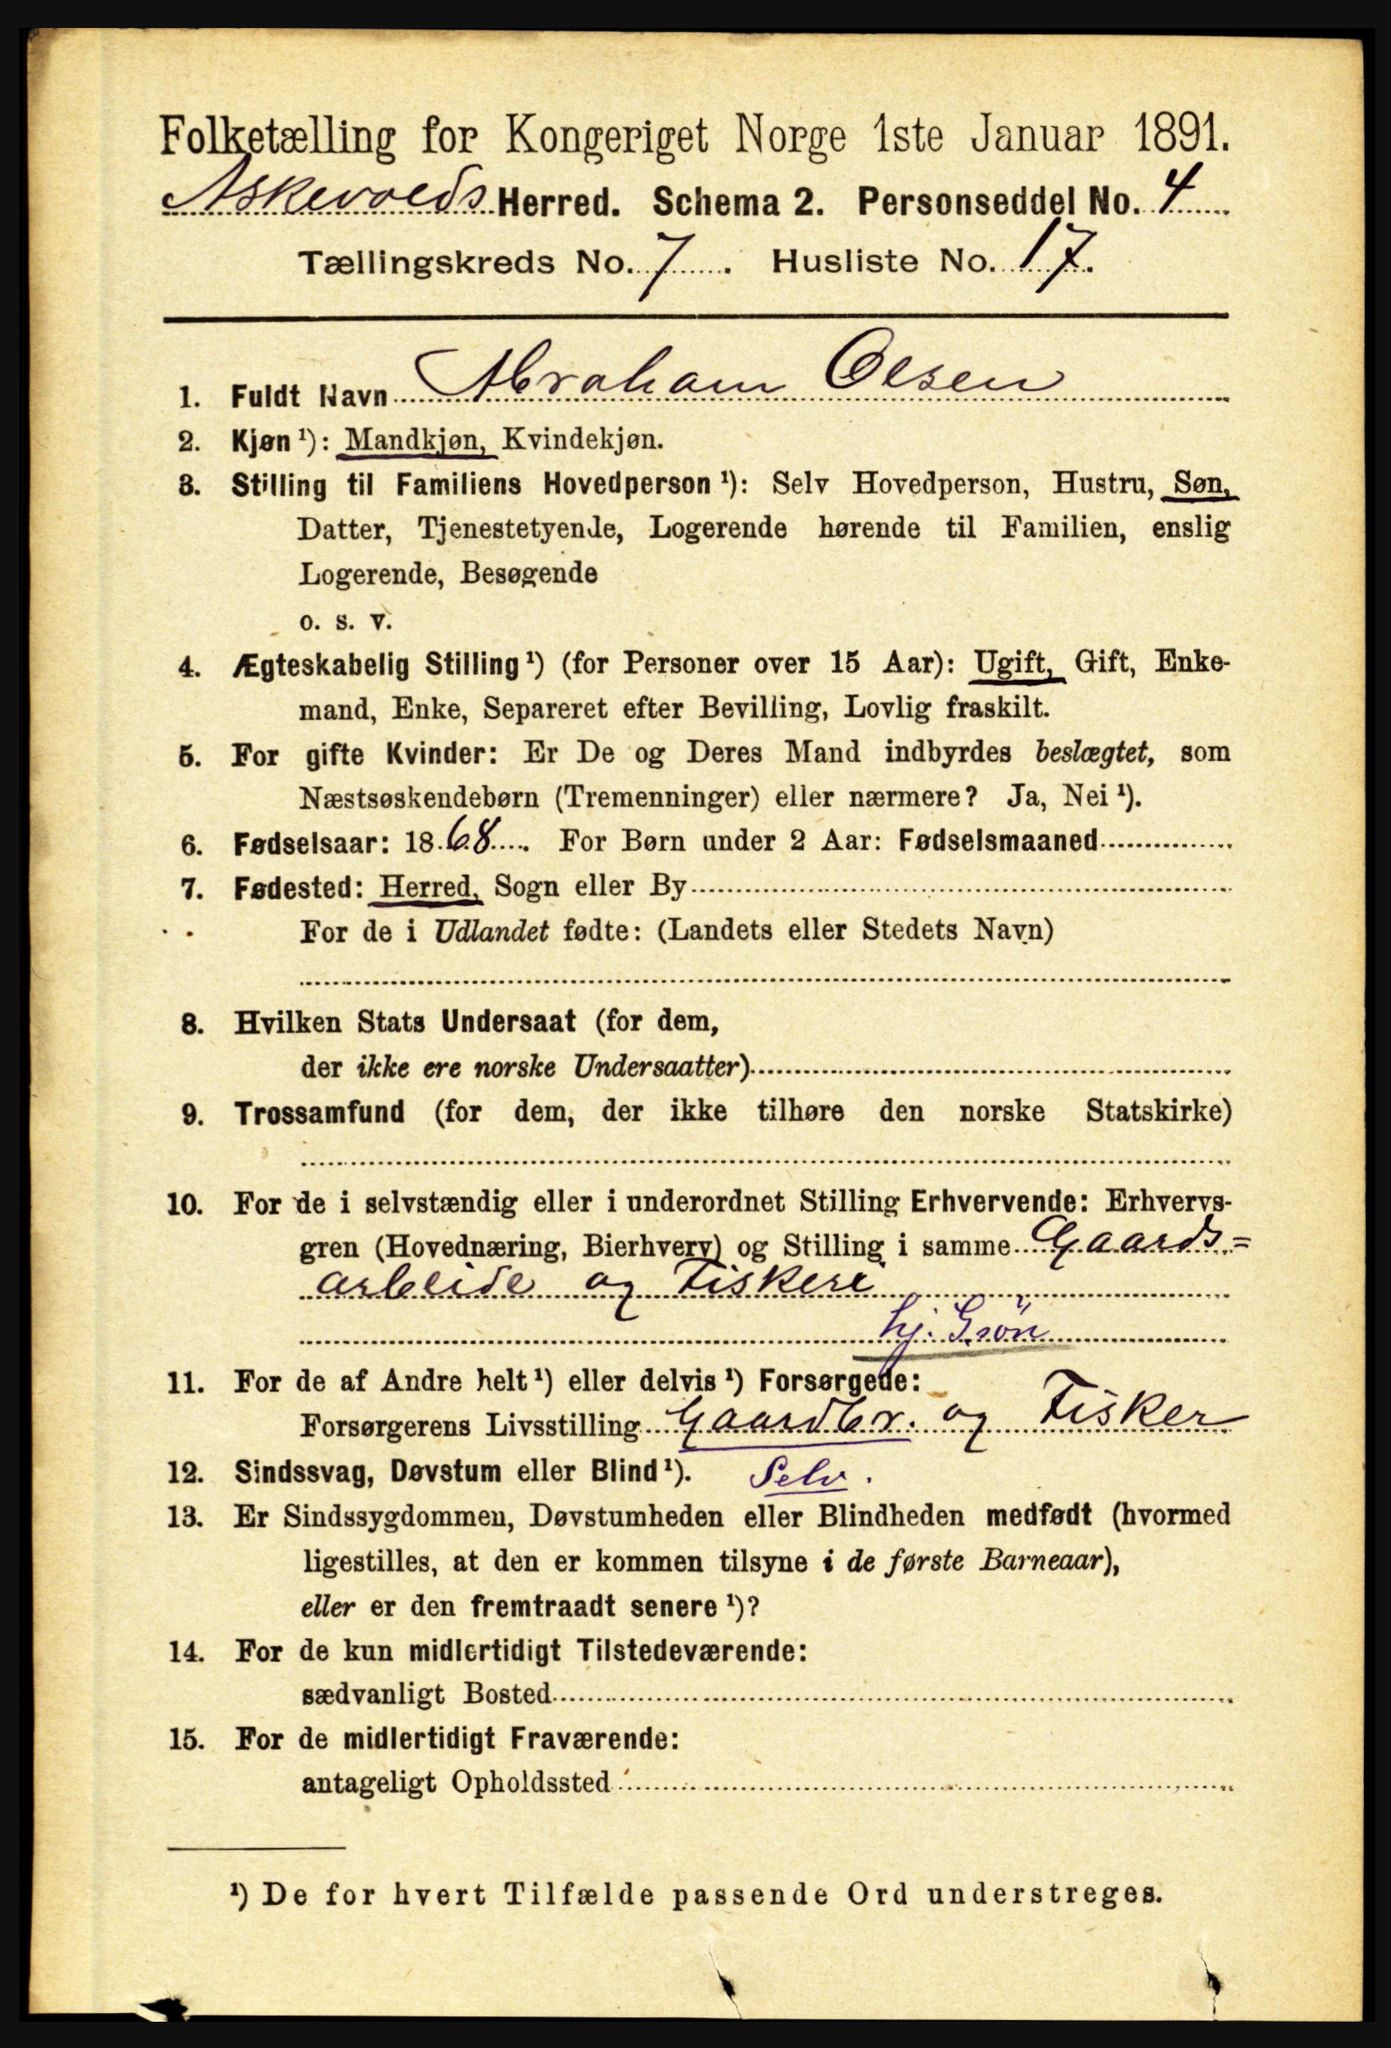 Folketælling for Kongeriget Norge 1ste Januar 1891.
Askevolds Herred. Schema 2. Personseddel No. 4
Tællingskreds No. 7. Husliste No. 17.
1. Fuldt Navn Abraham Olsen
2. Kjøn ¹): Mandkjøn, Kvindekjøn.
3. Stilling til Familiens Hovedperson ¹): Selv Hovedperson, Hustru, Søn,
Datter, Tjenestetyende, Logerende hørende til Familien, enslig
Logerende, Besøgende
o. s. v.
4. Ægteskabelig Stilling ¹) (for Personer over 15 Aar): Ugift, Gift, Enke-
mand, Enke, Separeret efter Bevilling, Lovlig fraskilt.
5. For gifte Kvinder: Er De og Deres Mand indbyrdes beslægtet, som
Næstsøskendebørn (Tremenninger) eller nærmere? Ja, Nei ¹).
6. Fødselsaar: 1868. For Børn under 2 Aar: Fødselsmaaned
7. Fødested: Herred, Sogn eller By
For de i Udlandet fødte: (Landets eller Stedets Navn)
8. Hvilken Stats Undersaat (for dem,
der ikke ere norske Undersaatter)
9. Trossamfund (for dem, der ikke tilhøre den norske Statskirke)
10. For de i selvstændig eller i underordnet Stilling Erhvervende: Erhvervs-
gren (Hovednæring, Bierhverv) og Stilling i samme Gaards=
arbeide og Fiskeri
hj. Søn
11. For de af Andre helt ¹) eller delvis ¹) Forsørgede:
Forsørgerens Livsstilling Gaardbr. og Fisker
12. Sindssvag, Døvstum eller Blind ¹). Selv.
13. Er Sindssygdommen, Døvstumheden eller Blindheden medfødt (hvormed
ligestilles, at den er kommen tilsyne i de første Barneaar),
eller er den fremtraadt senere ¹)?
14. For de kun midlertidigt Tilstedeværende:
sædvanligt Bosted
15. For de midlertidigt Fraværende:
antageligt Opholdssted
¹) De for hvert Tilfælde passende Ord understreges.